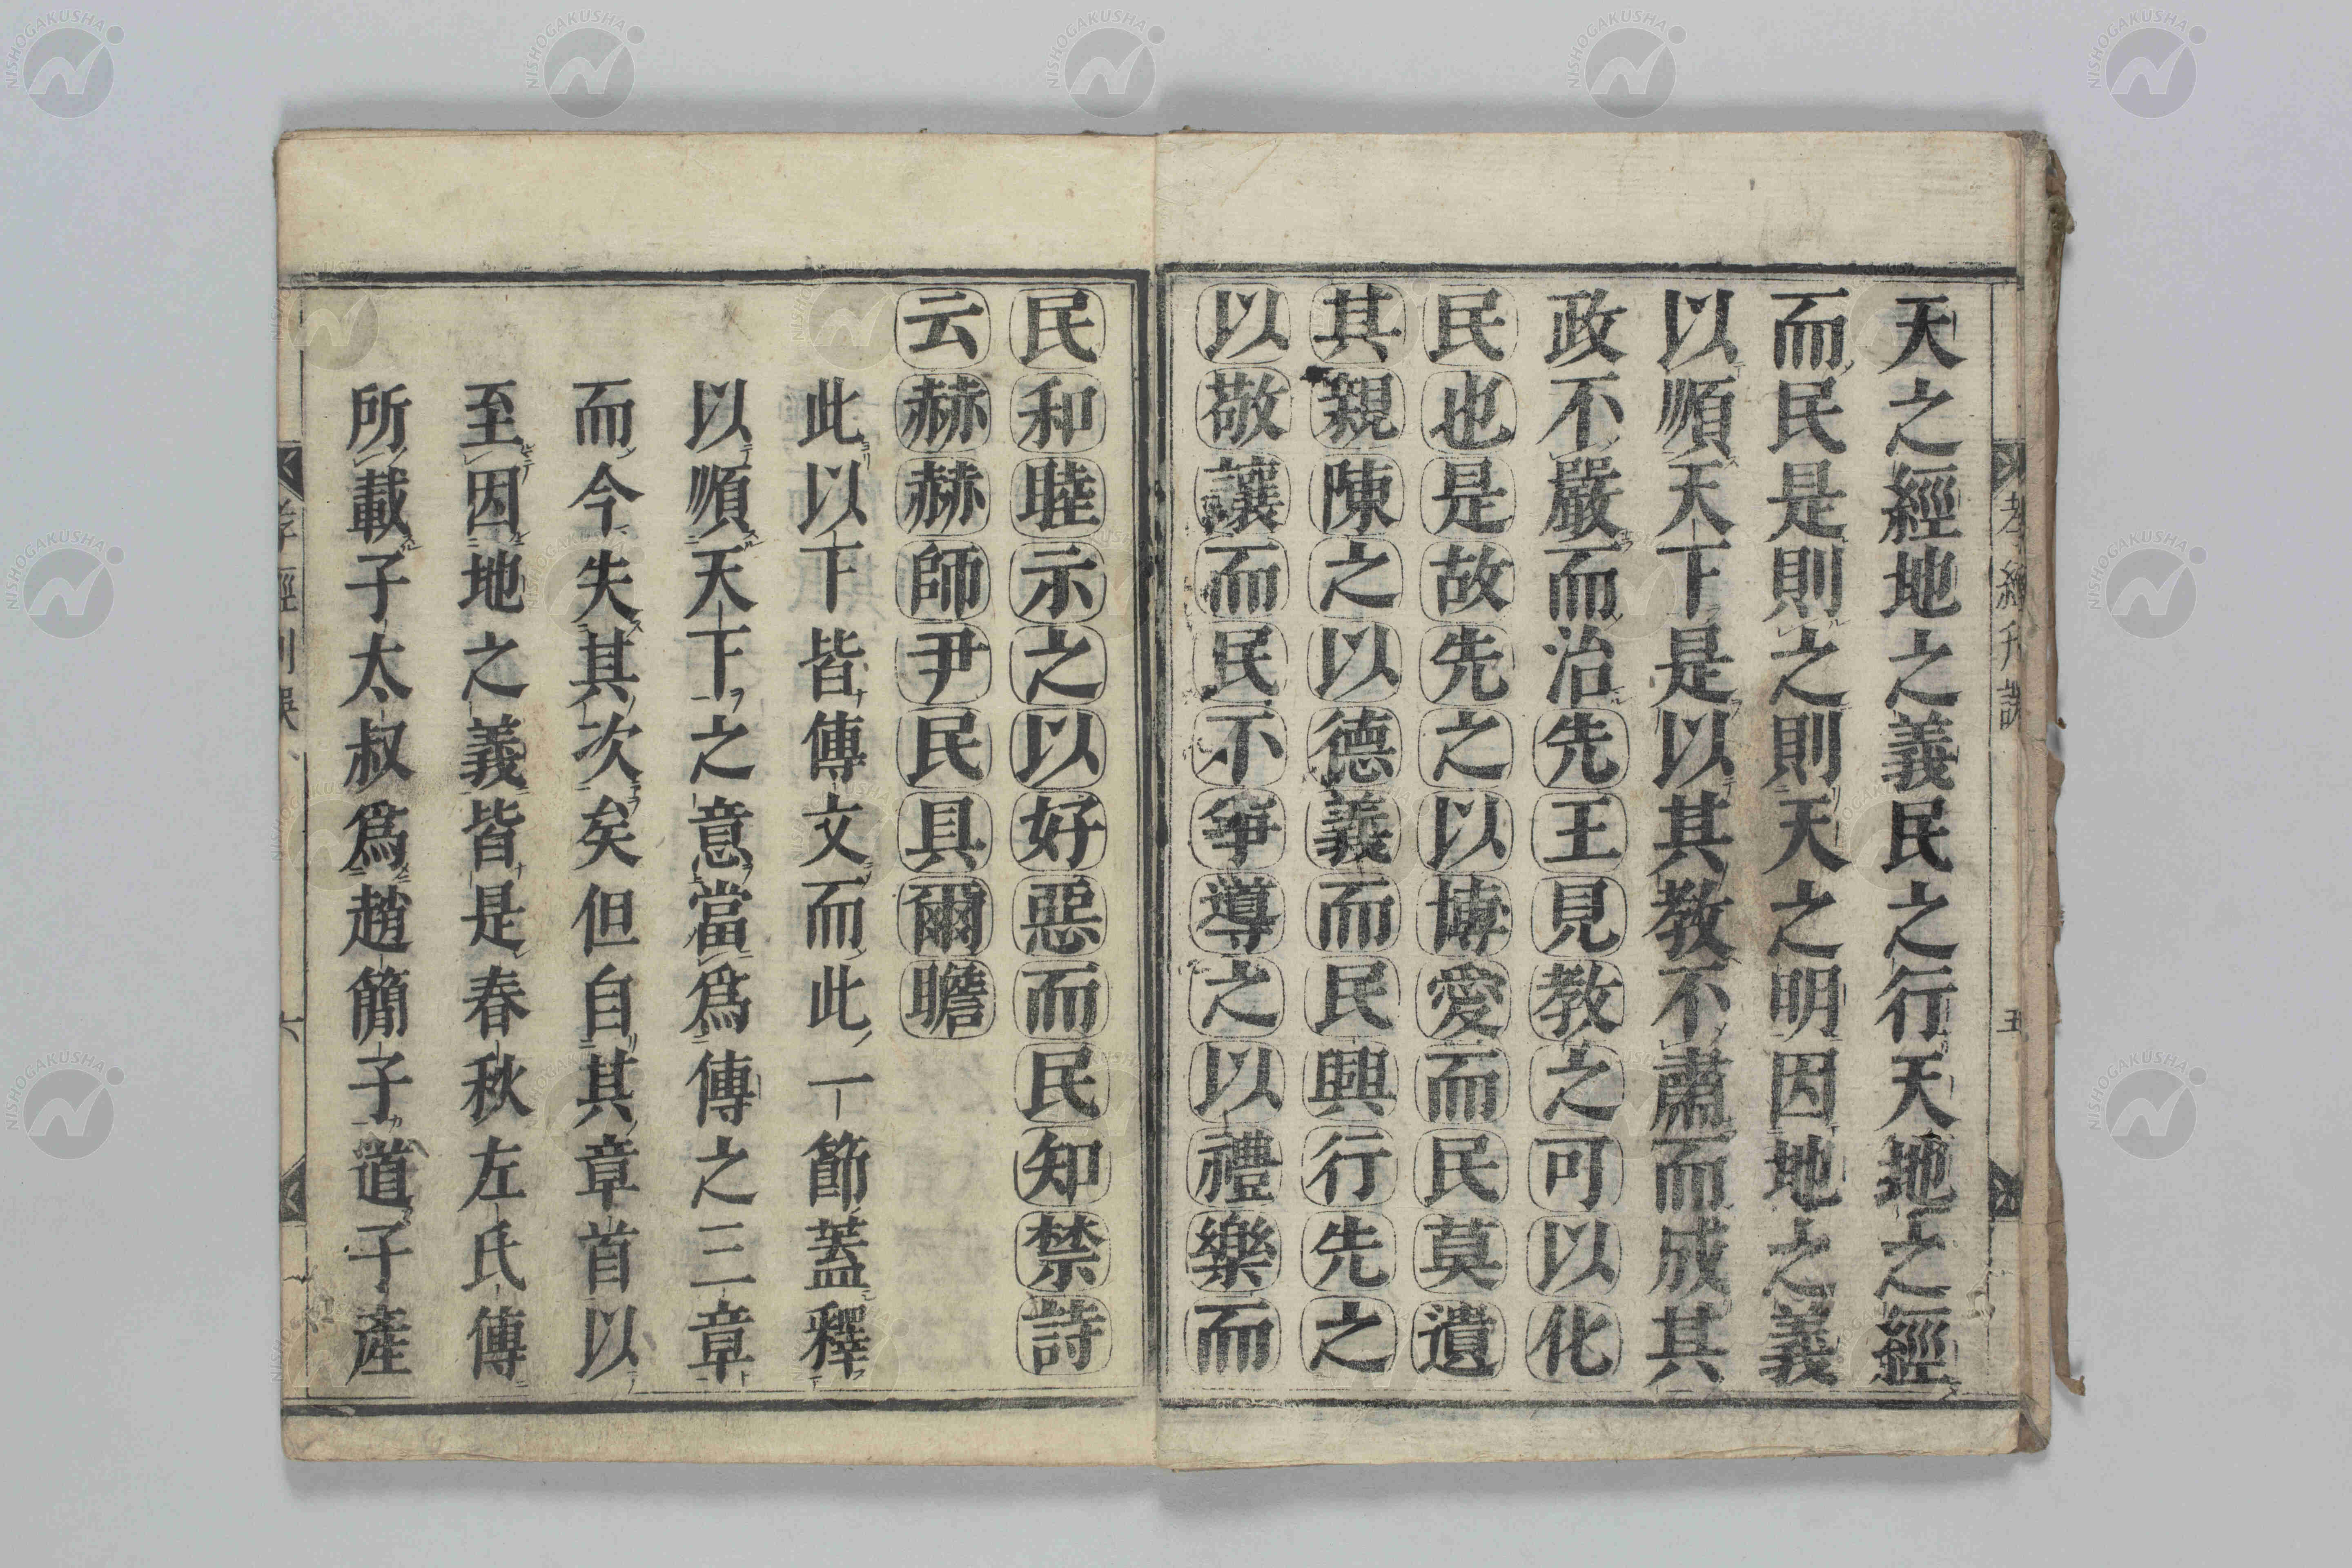 天之經地之義民之行天地之經
而民是則之則天之明因地之義
以順天下是以其教不肅而成其
政不嚴而治先王見教之可以化
民也是故先之以博愛而民莫遺
其親陳之以德義而民興行先之
以敬讓而民不爭導之以禮樂而
民和睦示之以好惡而民知禁詩
云赫赫師尹民具爾瞻
此以下皆傳文而此一節蓋釋
以順天下之意當爲傳之三章
而今失其次矣但自其章首以
至因地之義皆是春秋左氏傳
所載子太叔爲趙簡子道子產
孝經刊誤
五
孝經刊誤
六
NISHOGAKUSHA